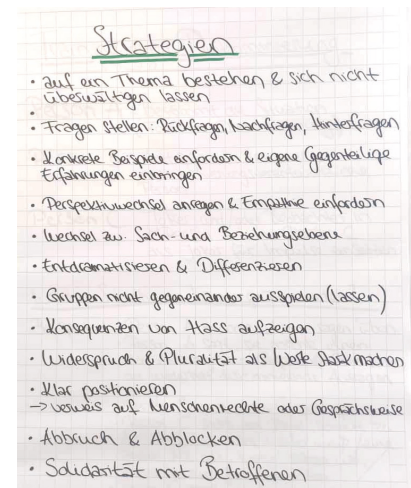 Strategien
• auf ein Thema bestehen & sich nicht
überwältigen lassen
•
• Fragen stellen: Rückfragen, Nachfragen, Hinterfragen
• Konkrete Beispiele einfordern & eigene Gegenteilige
Erfahrungen einbringen
• Perspektivwechsel anregen & Empathie einfordern
• Wechsel zw. Sach- und Beziehungsebene
• Entdramatisieren & Differenzieren
• Gruppen nicht gegeneinander ausspielen (lassen)
• Konsequenzen von Hass aufzeigen
• Widerspruch & Pluralität als Werte stark machen
• Klar positionieren
→ Verweis auf Menschenrechte oder Gesprächsweise
• Abbruch & Abblocken
• Solidarität mit Betroffenen